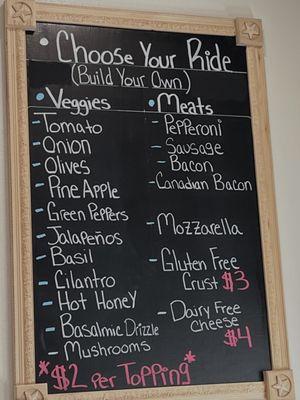 • Choose Your Ride
(Build Your Own)
• Veggies
- Tomato
- Onion
- Olives
- Pine Apple
- Green Peppers
- Jalapeños
- Basil
- Cilantro
- Hot Honey
- Basalmic Drizzle
- Mushrooms
• Meats
- Pepperoni
- Sausage
- Bacon
- Canadian Bacon
- Mozzarella
- Gluten Free
Crust $3
- Dairy Free
cheese
$4
*$2 per Topping*